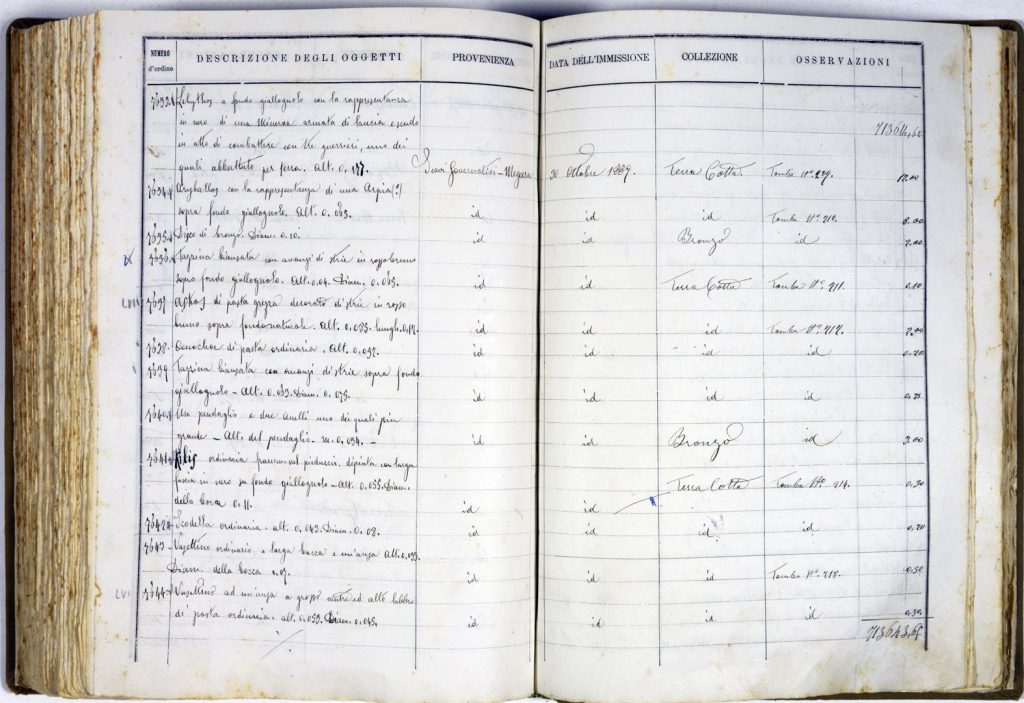 NUMERO d'ordine DESCRIZIONE DEGLI OGGETTI PROVENIENZA DATA DELL'IMMISSIONE COLLEZIONE OSSERVAZIONI
7633 Lekythos a fondo giallognolo con la rappresentanza
in nero di una Minerva armata di lancia
in atto di combattere con tre guerrieri, uno dei
quali abbattuto per terra. Alt. 0.177 Scavi Governativi - Megara 30 Ottobre 1889. Terra Cotta. Tomba Nº 209. 12.00
7634 Aryballos con la rappresentanza di una Arpia(?)
sopra fondo giallognolo. Alt. 0.065. id id id Tomba Nº 210. 8.00
7635 Disco di bronzo. Diam. 0.10. id id Bronzo id 2.00
7636 Tazzina biansata con avanzi di strie in rosso bruno
sopra fondo giallognolo. Alt. 0.04. Diam. 0.065. id id Terra Cotta Tomba Nº 211. 0.10
LVII 7637 Askos di pasta grezza decorato di strie in rosso
bruno sopra fondo naturale. Alt. 0.085. lungh. 0.12. id id id Tomba Nº 212. 2.00
7638 Oenochoe di pasta ordinaria. Alt. 0.092. id id id id 0.20
7639 Tazzina biansata con avanzi di strie sopra fondo
giallognolo - Alt. 0.053. Diam. 0.075. id id id id 0.25
7640 Un pendaglio e due anelli uno dei quali più
grande - Alt. del pendaglio. m. 0.034. - id id Bronzo id 3.00
7641 Kilis ordinaria pieduccio, dipinta con larga
fascia in nero su fondo giallognolo - Alt. 0.055. Diam. Terra Cotta Tomba Nº 214. 0.30
della bocca 0.11. id id
7642 Scodella ordinaria. alt. 0.043. Diam. 0.08. id id id id 0.20
7643 - Vasettino ordinario a larga bocca e un'ansa Alt. 0.055.
Diam. della bocca 0.07. id id id Tomba Nº 218. 0.50
LVI 7644 Vasettino ad un'ansa a grosso ventre ed alto labbro
di pasta ordinaria. alt. 0.053. Diam. 0.045. id id id id 0.30
713643,65